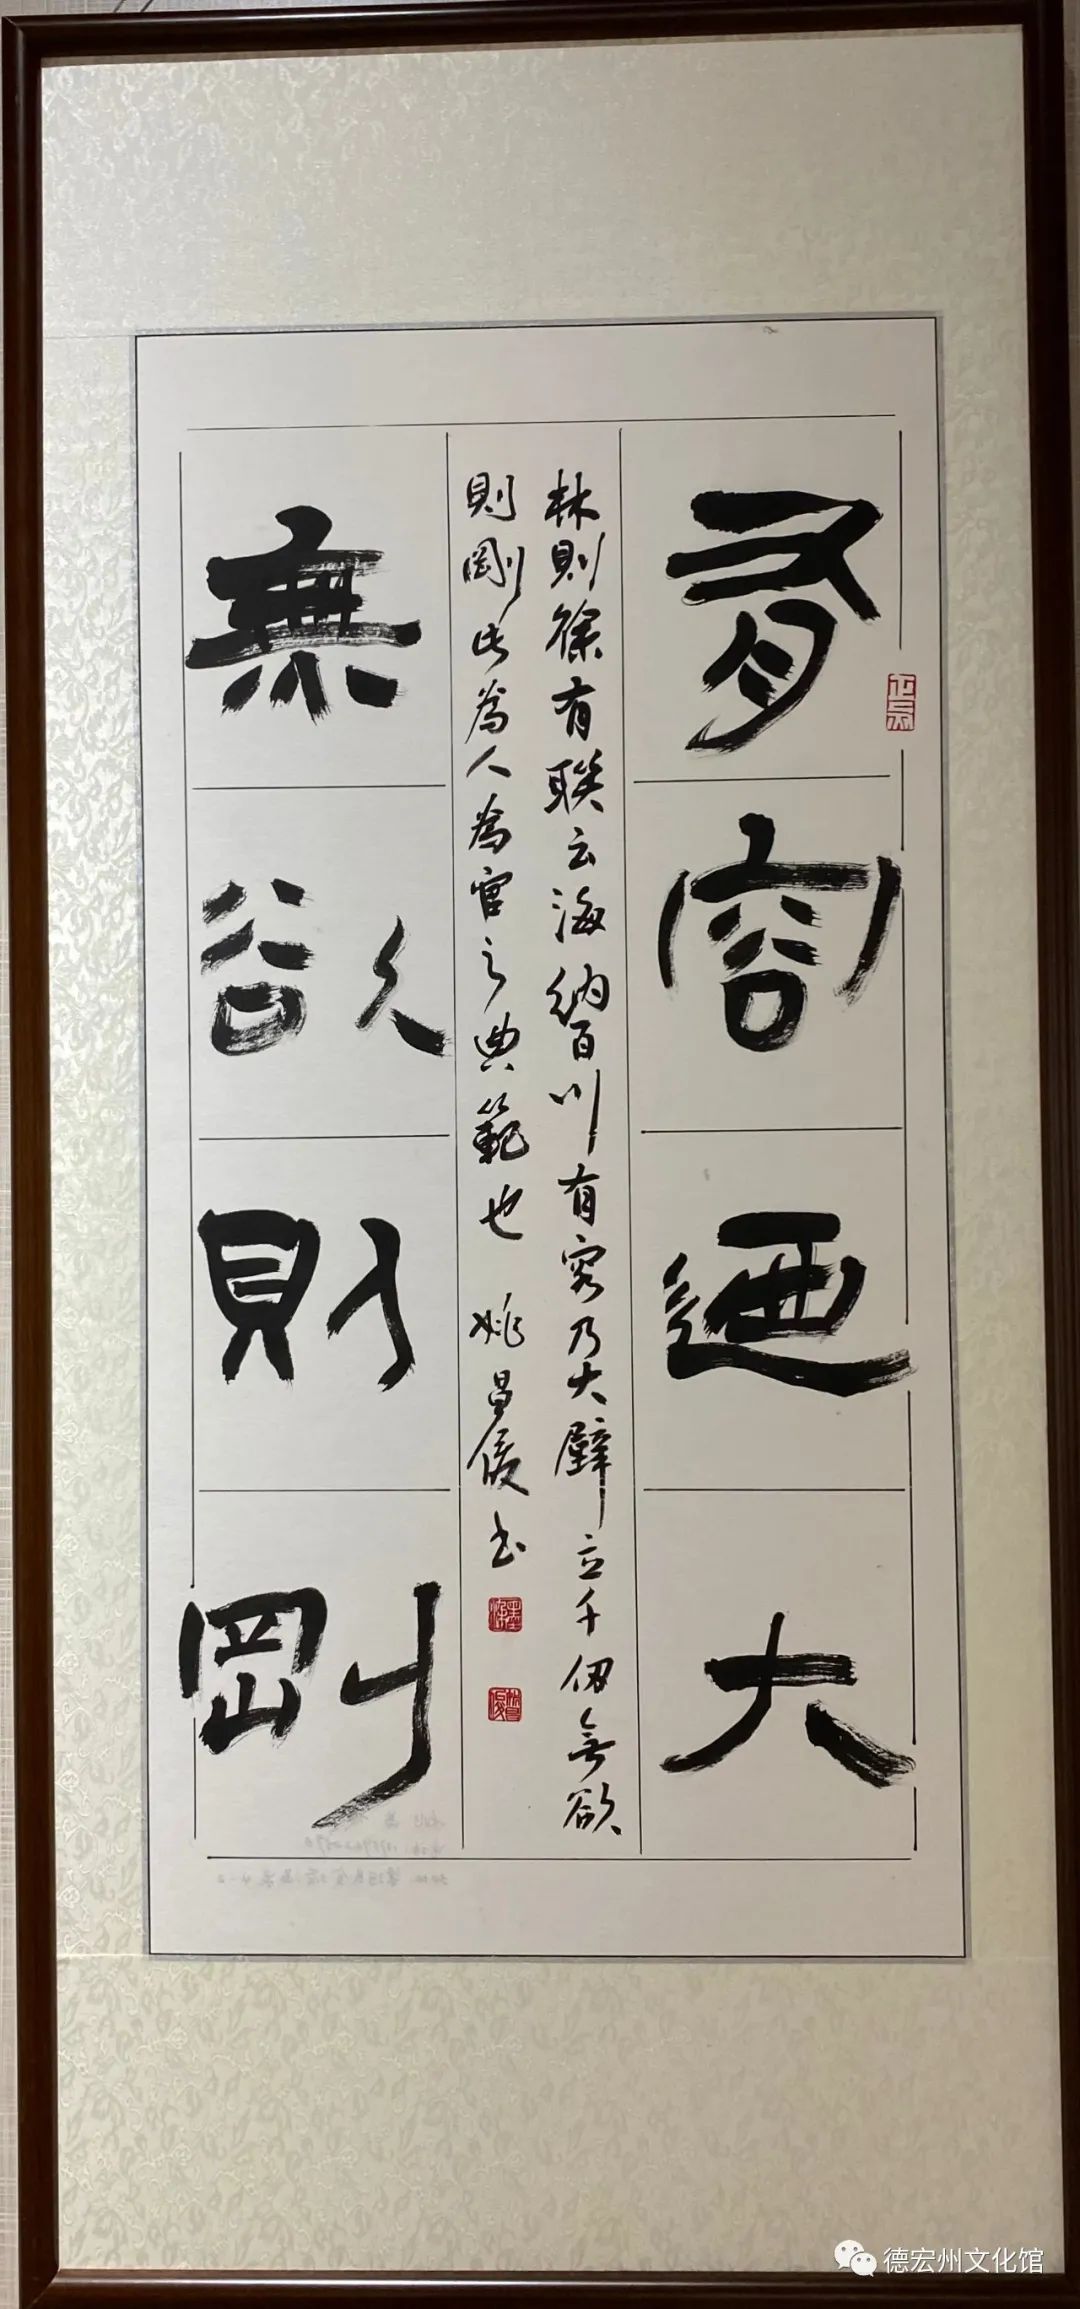 有容迺大
林則徐有联云海納百川有容乃大壁立千仞無欲
則剛此為人為官之典範也 姚昌俊书
無欲則剛
德宏州文化馆